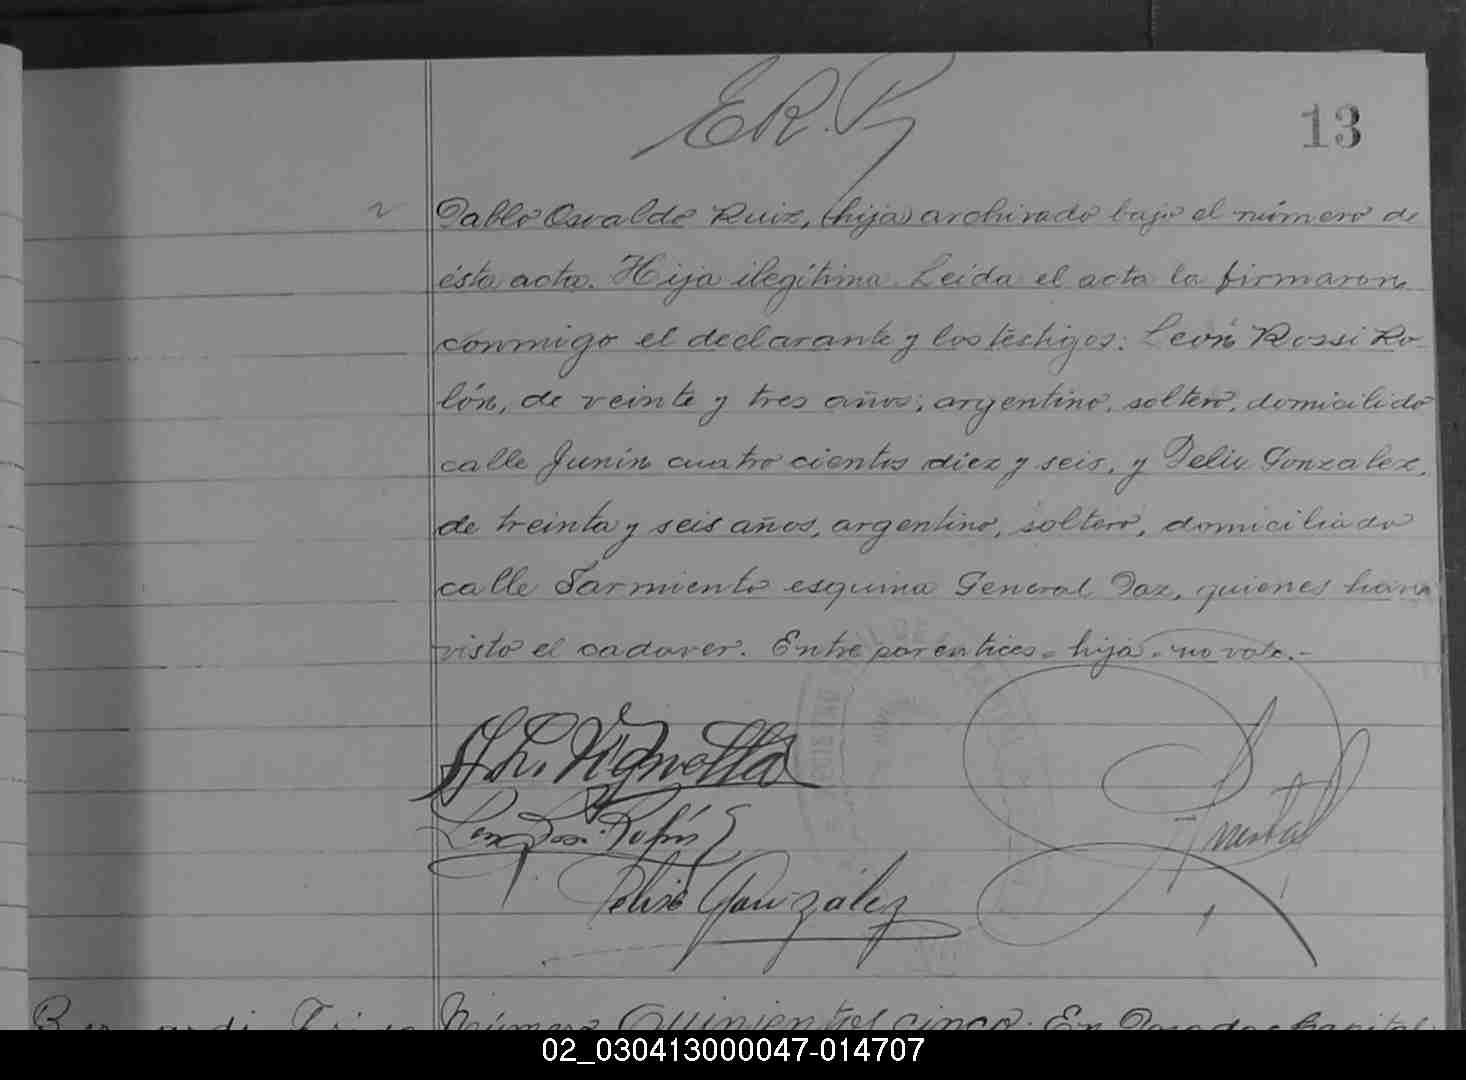 E R. P
13
Pablo Osvaldo Ruiz, (hija) archivado bajo el número de
ésta acta. Hija ilegítima. Leída el acta la firmaron
conmigo el declarante y los testigos: León Rossi Ro-
lón, de veinte y tres años, argentino, soltero, domicilido
calle Junín cuatro cientos diez y seis, y Felix Gonzalez,
de treinta y seis años, argentino, soltero, domiciliado
calle Sarmiento esquina General Paz, quienes han
visto el cadaver. Entre paréntices = hija = no vale.-
Vignolla
Felix González
Número Quinientos cinco. En Posadas Capital
02_030413000047-014707